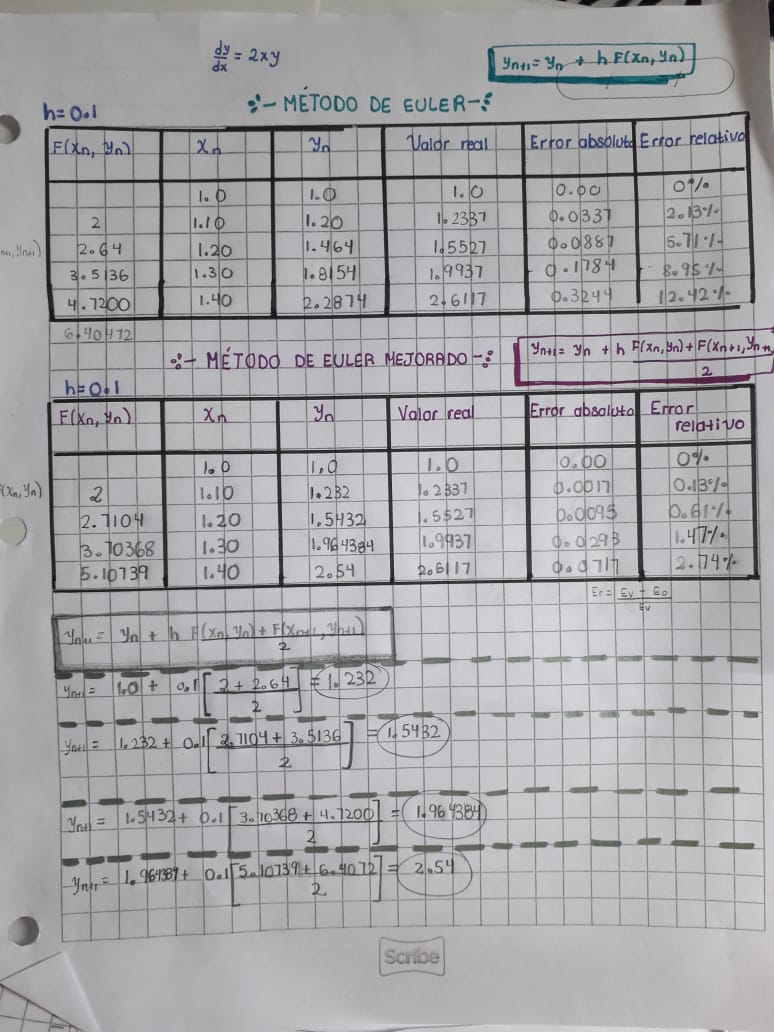 dy/dx = 2xy
yn+1 = yn + h F(xn, yn)
h=0.1
MÉTODO DE EULER
F(xn, yn) Xn yn Valor real Error absoluto Error relativo
1.0 1.0 1.0 0.00 0%
2 1.10 1.20 1.2337 0.0337 2.73%
2.64 1.20 1.464 1.5527 0.0887 5.71%
3.5136 1.30 1.8154 1.9937 0.1784 8.95%
4.7200 1.40 2.2874 2.6117 0.3244 12.42%
6.40472
MÉTODO DE EULER MEJORADO
yn+1 = yn + h F(xn, yn) + F(xn+1, yn+1) / 2
h=0.1
F(xn, yn) Xn yn Valor real Error absoluto Error relativo
1.0 1.0 1.0 0.00 0%
(xn, yn)
2 1.10 1.232 1.2337 0.0017 0.13%
2.7104 1.20 1.5432 1.5527 0.0095 0.61%
3.70368 1.30 1.964384 1.9937 0.0293 1.47%
5.10739 1.40 2.54 2.6117 0.0717 2.74%
Er = Ev - Eo / Ev
yn+1 = yn + h F(xn, yn) + F(xn+1, yn+1) / 2
yn+1 = 1.0 + 0.1 [2 + 2.64 / 2] = 1.232
yn+1 = 1.232 + 0.1 [2.7104 + 3.5136 / 2] = 1.5432
yn+1 = 1.5432 + 0.1 [3.70368 + 4.7200 / 2] = 1.964384
yn+1 = 1.964384 + 0.1 [5.10739 + 6.4072 / 2] = 2.54
Scribe